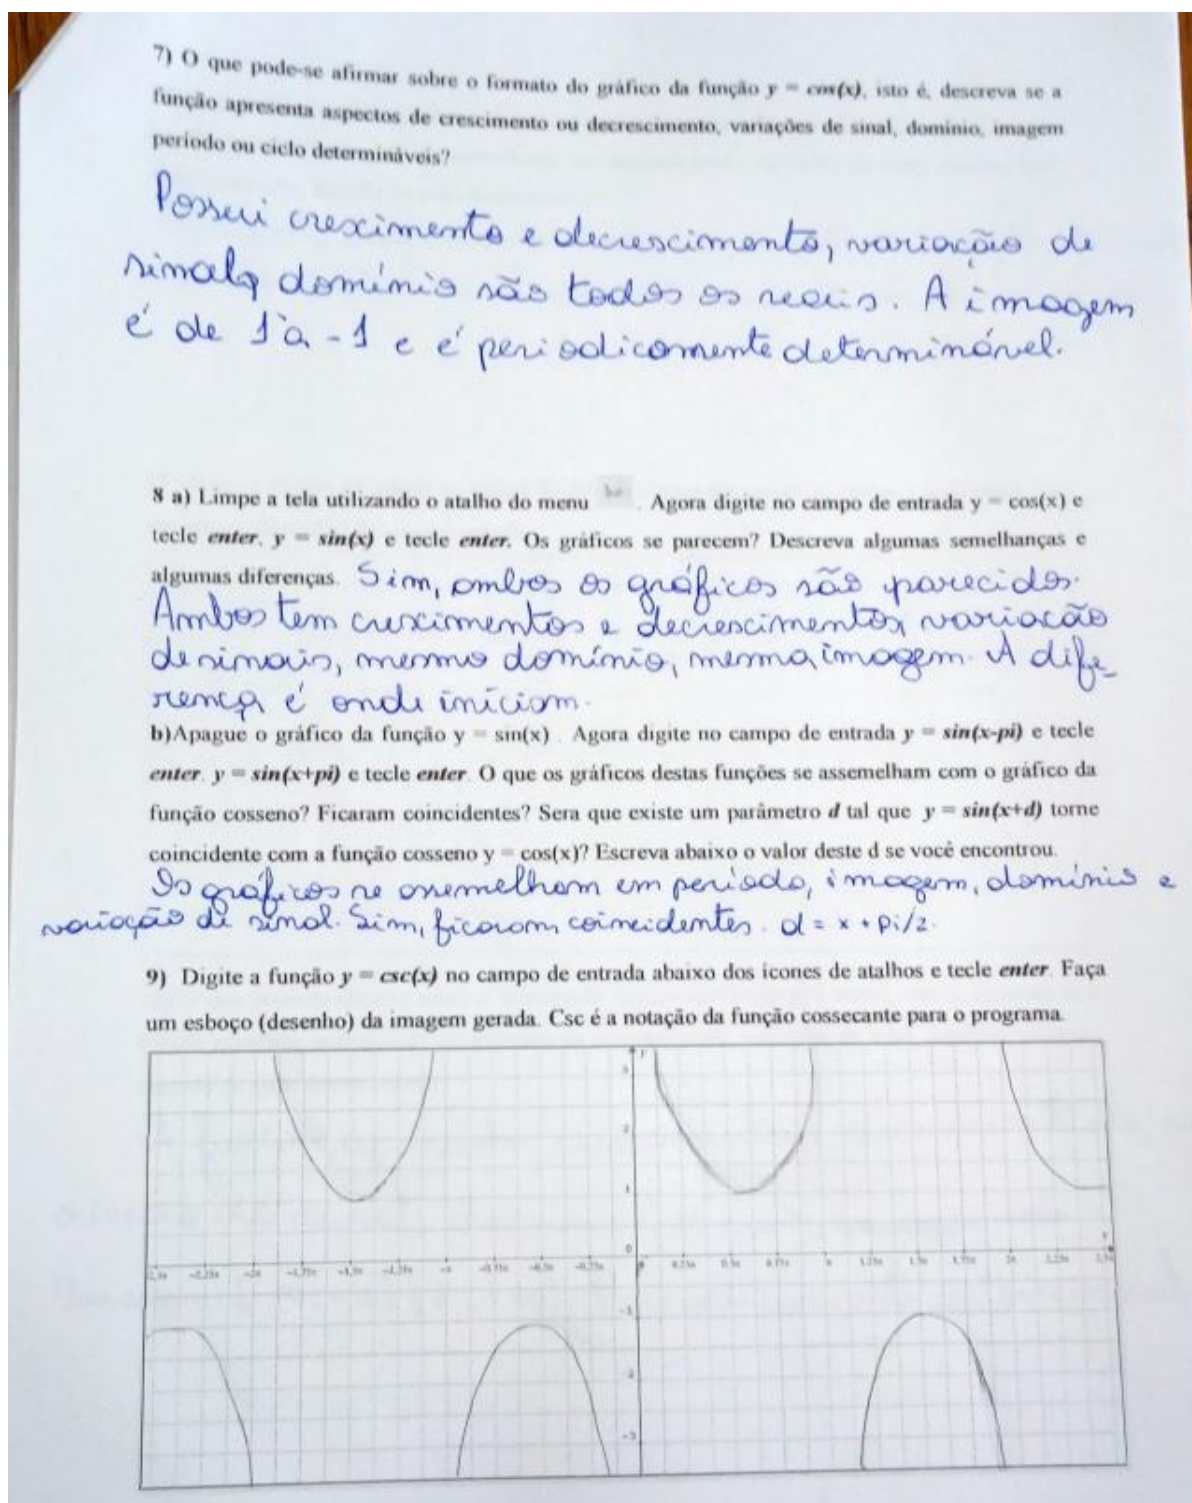 7) O que pode-se afirmar sobre o formato do gráfico da função y = cos(x), isto é, descreva se a
função apresenta aspectos de crescimento ou decrescimento, variações de sinal, domínio, imagem
período ou ciclo determináveis?
Possui crescimento e decrescimento, variação de
sinal, domínio são todos os reais. A imagem
é de 1 à -1 e é periodicamente determinável.
8 a) Limpe a tela utilizando o atalho do menu . Agora digite no campo de entrada y = cos(x) e
tecle enter, y = sin(x) e tecle enter. Os gráficos se parecem? Descreva algumas semelhanças e
algumas diferenças. Sim, ambos os gráficos são parecidos.
Ambos tem crescimentos e decrescimentos, variação
de sinais, mesmo domínio, mesma imagem. A dife-
rença é onde iniciam.
b)Apague o gráfico da função y = sin(x) . Agora digite no campo de entrada y = sin(x-pi) e tecle
enter. y = sin(x+pi) e tecle enter. O que os gráficos destas funções se assemelham com o gráfico da
função cosseno? Ficaram coincidentes? Sera que existe um parâmetro d tal que y = sin(x+d) torne
coincidente com a função cosseno y = cos(x)? Escreva abaixo o valor deste d se você encontrou.
Os gráficos se assemelham em período, imagem, domínio e
variação de sinal. Sim, ficaram coincidentes. d = x + pi/2.
9) Digite a função y = csc(x) no campo de entrada abaixo dos ícones de atalhos e tecle enter. Faça
um esboço (desenho) da imagem gerada. Csc é a notação da função cossecante para o programa.
y
3
2
1
0
-2,25π -2π -1,75π -1,5π -1,25π -π -0,75π -0,5π -0,25π 0 0,25π 0,5π 0,75π π 1,25π 1,5π 1,75π 2π 2,25π 2,5π
-1
-2
-3